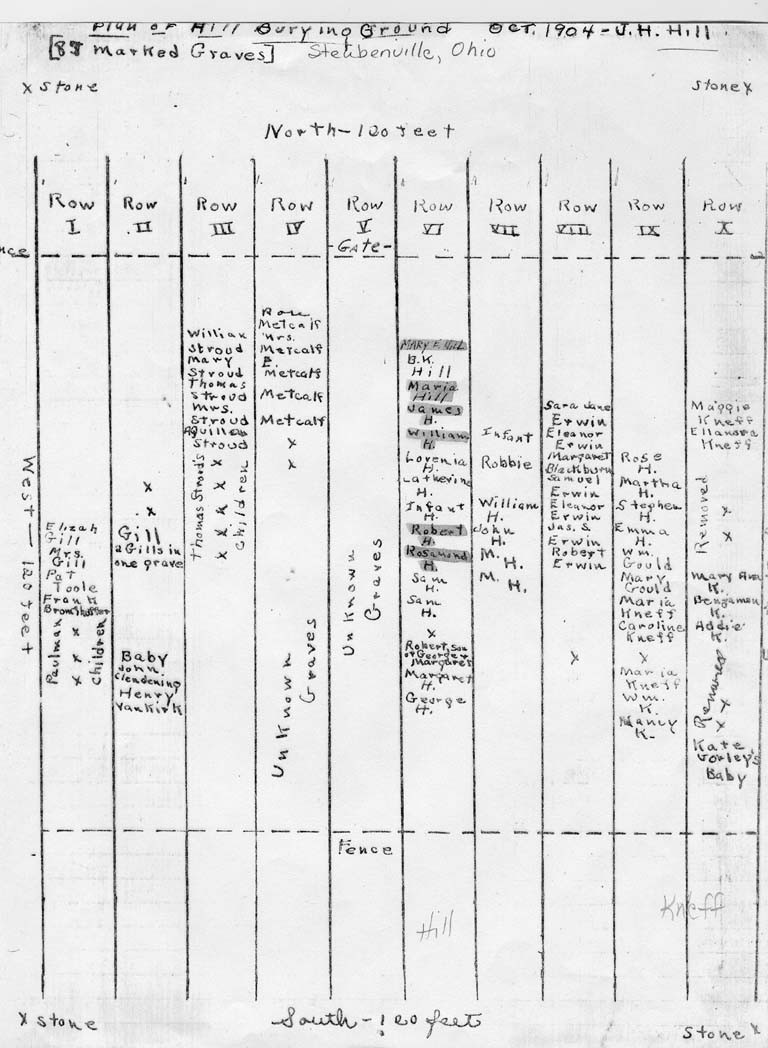 Plan of Hill Burying Ground Oct. 1904 - J.H. Hill
[85 Marked Graves] Steubenville, Ohio
x stone
stone x
North - 120 feet
Row I
Row II
Row III
Row IV
Row V
Row VI
Row VII
Row VIII
Row IX
Row X
nce
-Gate-
West - 120 feet
Elizah
Gill
Mrs.
Gill
Pat
Toole
Frank
Paulman children
x
x
x
x
x
Gill
2 Gills in
one grave
Baby
John
Clendening
Henry
VanKirk
William
Stroud
Mary
Stroud
Thomas
Stroud
Mrs.
Stroud
Aquilla
Stroud
Thomas Stroud's
children
x
x
x
x
x
x
Metcalf
Mrs.
Metcalf
E.
Metcalf
Metcalf
Metcalf
x
x
Unknown
Graves
Unknown
Graves
MARY E. Hill
B.K.
Hill
Maria
Hill
James
H.
William
H.
Lovenia
H.
Catherine
H.
Infant
H.
Robert
H.
Rosamond
H.
Sam
H.
Sam
H.
x
Robert, son
of George &
Margaret
Margaret
H.
George
H.
Infant
Robbie
William
H.
John
H.
M.
H.
M.
H.
Sara Jane
Erwin
Eleanor
Erwin
Margaret
Blackburn
Samuel
Erwin
Eleanor
Erwin
Jas. S.
Erwin
Robert
Erwin
x
Rose
H.
Martha
H.
Stephen
H.
Emma
H.
Wm.
Gould
Mary
Gould
Maria
Kneff
Caroline
Kneff
x
Maria
Kneff
Wm.
K.
Nancy
K.
Maggie
Kneff
Ellanora
Kneff
Removed
x
x
Mary Ann
K.
Bengamen
K.
Addie
K.
Removed
x
x
Kate
Gorley's
Baby
Fence
Hill
Kneff
x stone
South - 120 feet
stone x